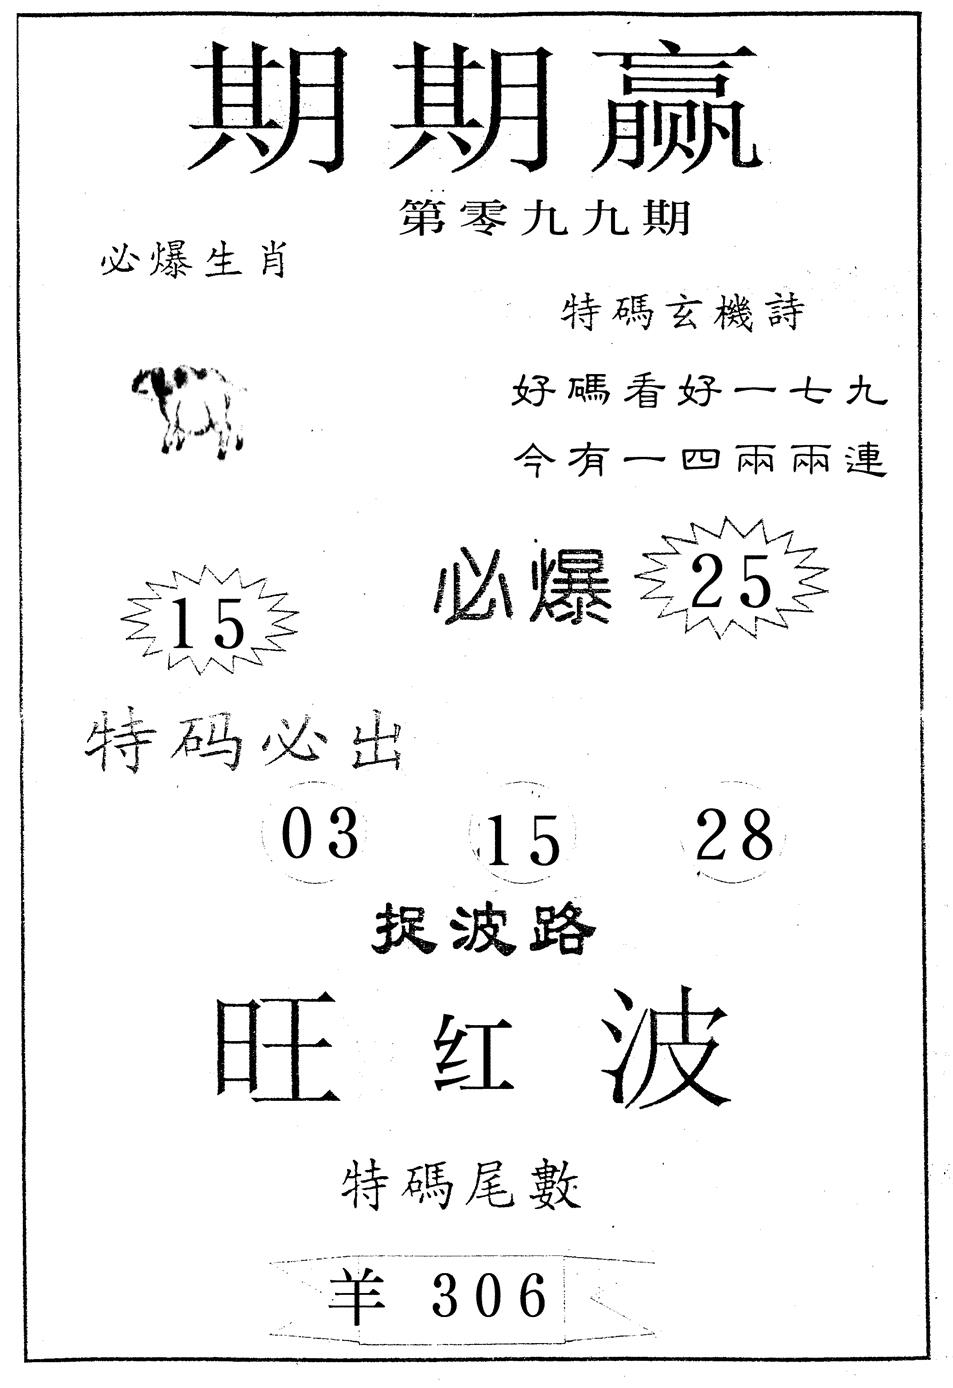 期期赢
第零九九期
必爆生肖
特碼玄機詩
好碼看好一七九
今有一四兩兩連
必爆 25
15
特码必出
03 15 28
捉波路
旺红波
特碼尾數
羊 306